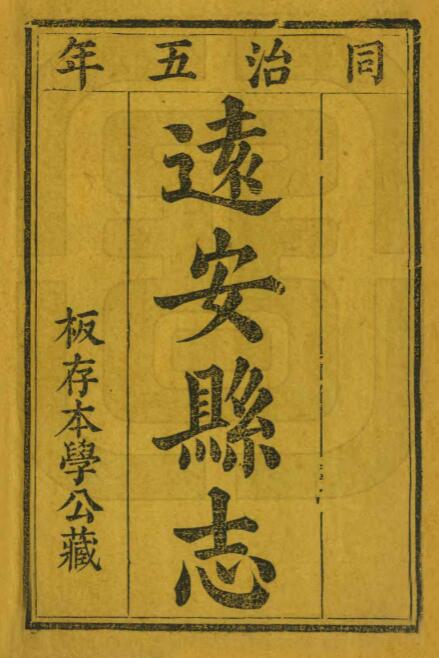 同治五年
遠安縣志
板存本學公藏